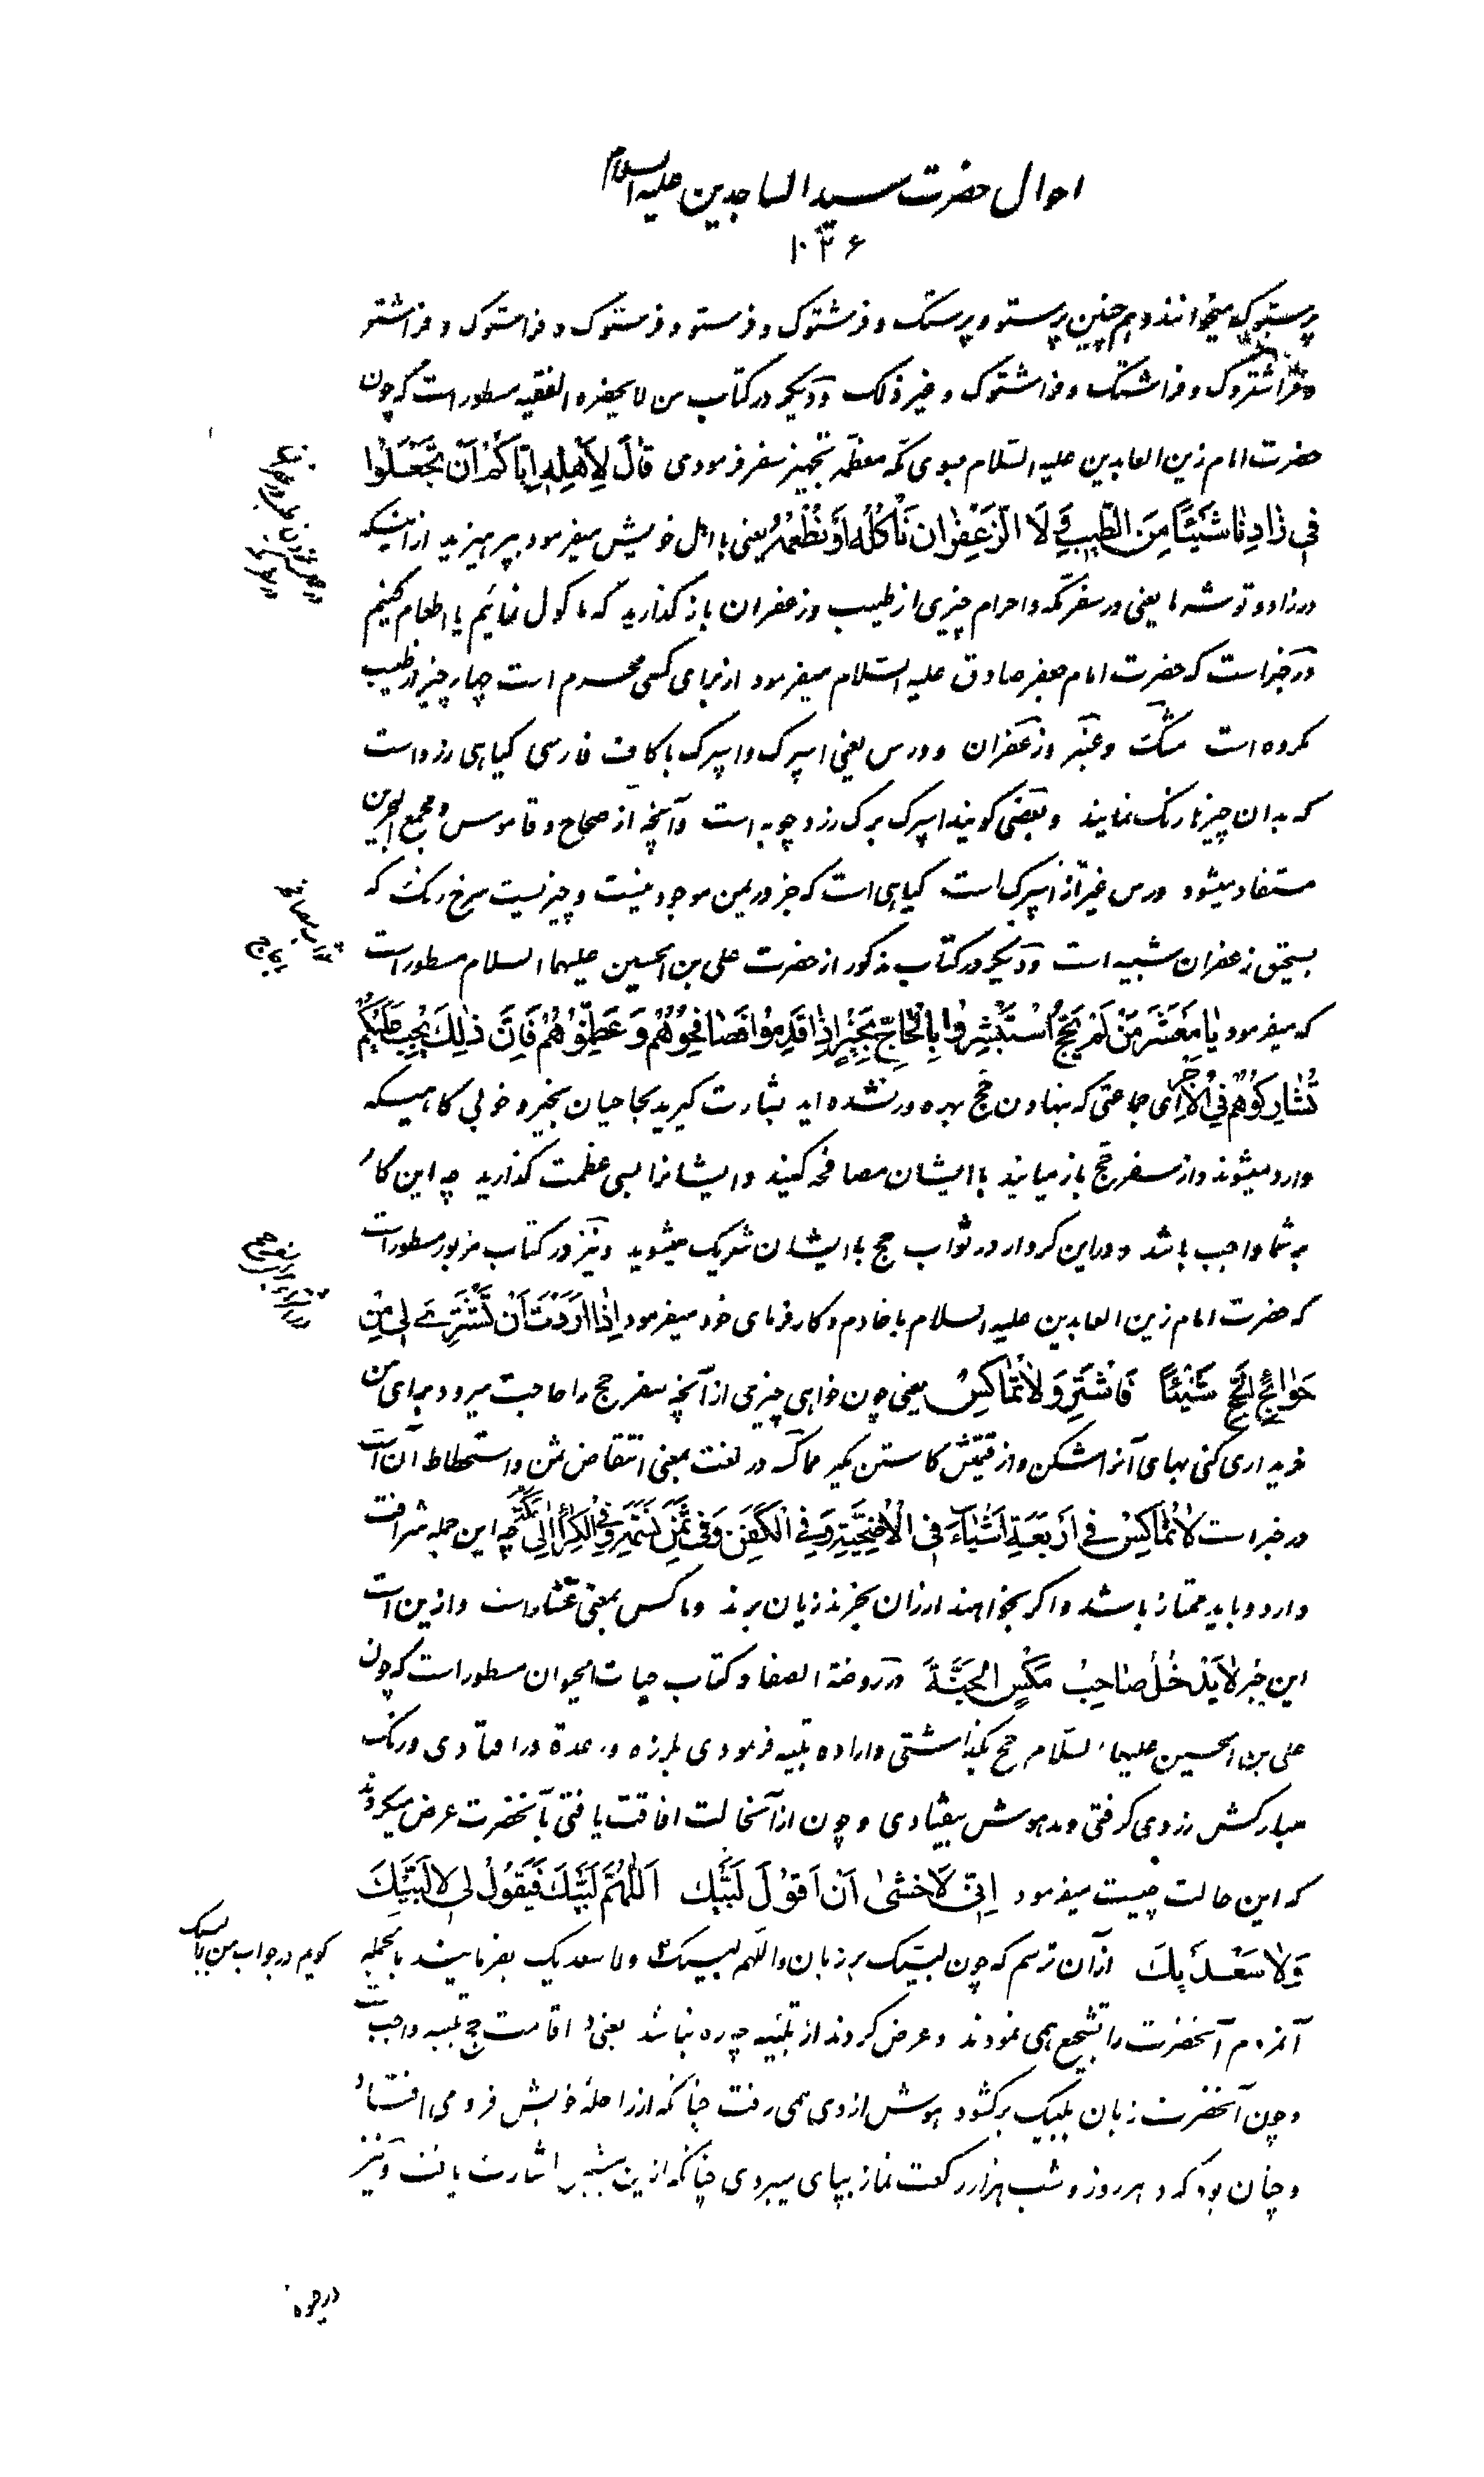 احوال حضرت سید الساجدین علیه السلام
۱۰۳۶
پرستوک میخوانند و هم چنین پرستو و پرستک و فرشتوک و فرستو و فرستوک و فراستوک و فراشتو
و فراشتروک و فراشتک و فراشتوک و غیر ذلک و دیگر در کتاب من لا یحضره الفقیه مسطور است که چون
حضرت امام زین العابدین علیه السّلام بسوی مکّه معظّمه تجهیز سفر فرمودی قٰالَ لِاَهْلِهِ اِیّٰاکُمْ اَنْ تَجْعَلُوا
فِی زٰادِنٰا شَیْئًا مِنَ الطّیبِ وَ لَا الزَّعْفِرٰان نَاْکُلُهُ اَوْ نُطْعِمُهُ یعنی با اهل خویش میفرمود بپرهیزید از اینکه
در زاد و توشه ما یعنی در سفر مکّه و احرام چیزی از طیب و زعفران باز گذارید که ماکول نمائیم یا اطعام کنیم
در خبر است که حضرت امام جعفر صادق علیه السّلام میفرمود از برای کسی محرم است چهار چیز از طیب
مکروه است مشک و عنبر و زعفران و ورس یعنی اسپرک و اسپرک با کاف فارسی گیاهی زرد است
که بدان چیزها رنگ نمایند و بعضی گویند اسپرک برک زردچوبه است و آنچه از صحاح و قاموس و مجمع البحرین
مستفاد میشود ورس غیر از اسپرک است گیاهی است که جز در یمن موجود نیست و چیزیست سرخ رنک که
بسحیق زعفران شبیه است و دیگر در کتاب مذکور از حضرت علی بن الحسین علیهما السلام مسطور است
که میفرمود یٰا مَعْشَرَ مَنْ لَمْ یَحُجَّ اسْتَبْشِرُوا بِالْحٰاجِّ بِخَیْرٍ اِذٰا قَدِمُوا فَصٰافِحُوهُمْ وَ عَظِّمُوهُمْ فَاِنَّ ذٰلِکَ یَجِبُ عَلَیْکُمْ
تُشٰارِکُوهُمْ فِی الْاَجْرِ ای جماعتی که بنهادن حج بهره ور نشده اید بشارت گیرید بحاجیان بخیر و خوبی گاهیکه
وارد میشوند و از سفر حج باز میایند با ایشان مصافحه کنید و ایشانرا بسی عظمت گذارید چه این کار
بر شما واجب باشد و در این کردار در ثواب حج با ایشان شریک میشوید و نیز در کتاب مزبور مسطور است
که حضرت امام زین العابدین علیه السلام با خادم و کارفرمای خود میفرمود اِذٰا اَرَدْتَ اَنْ تَشْتَرِیَ لِی مِنْ
حَوٰائِجِ الْحَجِّ شَیْئًا فَاشْتَرِ وَ لٰا تُمٰاکِسْ یعنی چون خواهی چیزی از آنچه سفر حج را حاجت میرود برای من
خریداری کنی بهای آنرا مشکن و از قیمتش کاستن مگیر مماکسه در لغت بمعنی انتقاص ثمن و استحطاط آن است
در خبر است لٰا تُمٰاکِسْ فی اَرْبَعَةِ اَشْیٰاءَ فِی الْاُضْحِیَّةِ وَ فِی الْکَفَنِ وَ فی ثَمَنِ نَسَمَةٍ وَ فِی الْکِرٰاءِ اِلٰی مَکَّةَ چه این جمله شرافت
دارد و باید ممتاز باشد و اگر بخواهند ارزان بخرند زیان برند و ماکس بمعنی عشّار است و ازین است
این خبر لٰا یَدْخُلُ صٰاحِبُ مَکْسٍ الْجَنَّةَ در روضة الصفا و کتاب حیات الحیوان مسطور است که چون
علی بن الحسین علیهما السّلام حج بگذاشتی و اراده تلبیه فرمودی بلرزه و رعدة در افتادی و رنک
مبارکش زردی گرفتی و مدهوش بیفتادی و چون از آنحالت افاقت یافتی بآنحضرت عرض میکردند
که این حالت چیست میفرمود اِنّی لَاَخْشٰی اَنْ اَقُولَ لَبَّیْک اَللّٰهُمَّ لَبَّیْکَ فَیَقُولُ لی لا لَبَّیْکَ
وَ لٰا سَعْدَیْکَ از آن ترسم که چون لبّیک بر زبان و اللّهم لبیک و لا سعدیک بفرمایند بالجمله
گویم در جواب من لا لبیک
آنمردم آنحضرت را تشجیع همی نمودند و عرض کردند از تلبیه چاره نباشد یعنی در اقامت حج تلبیه واجب است
و چون آنحضرت زبان بلبیک برگشود هوش از وی همی رفت چنانکه از راحله خویش فرو می افتاد
و چنان بود که در هر روز و شب هزار رکعت نماز بپای میبردی چنانکه ازین پیش اشارت یافت و نیز
در وجوه